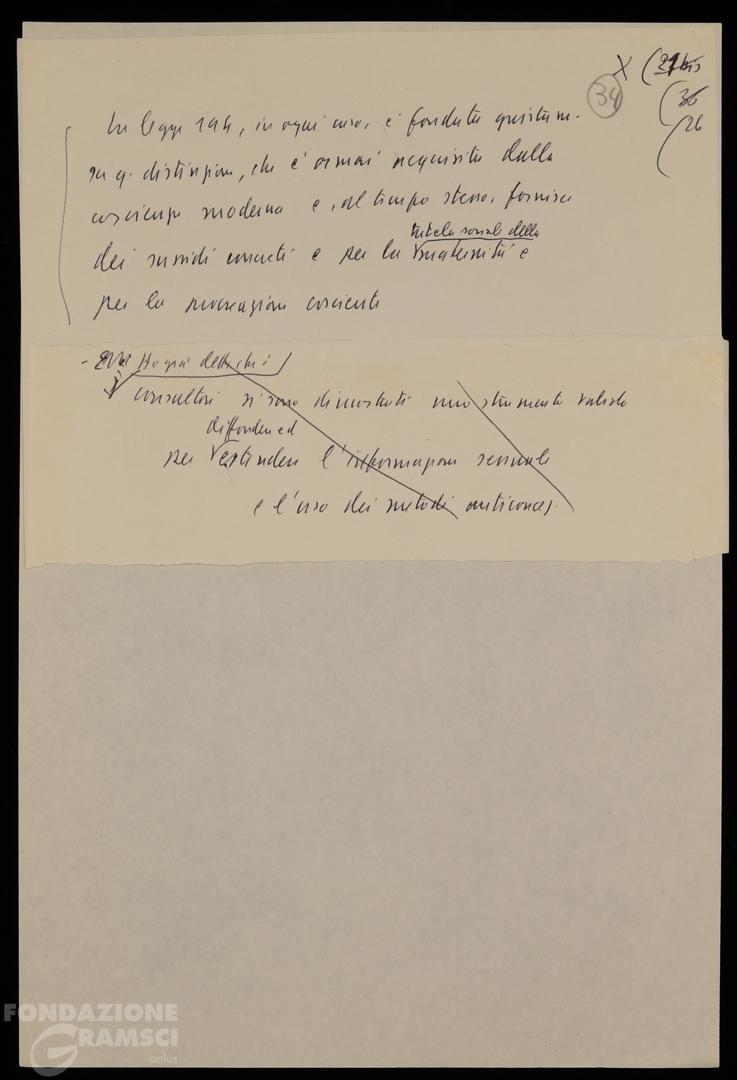 X (21 bis
34 (36
(26
La legge 194, in ogni caso, è fondata giustam.
su q. distinzione, che è ormai acquisita dalla
coscienza moderna e, al tempo stesso, fornisce
dei sussidi concreti e per la
tutela sociale della
maternità e
per la procreazione cosciente
Ho già detto che i
consultori si sono dimostrati uno strumento valido
diffondere ed
per estendere l'informazione sessuale
e l'uso dei metodi anticonces.
FONDAZIONE
GRAMSCI
onlus